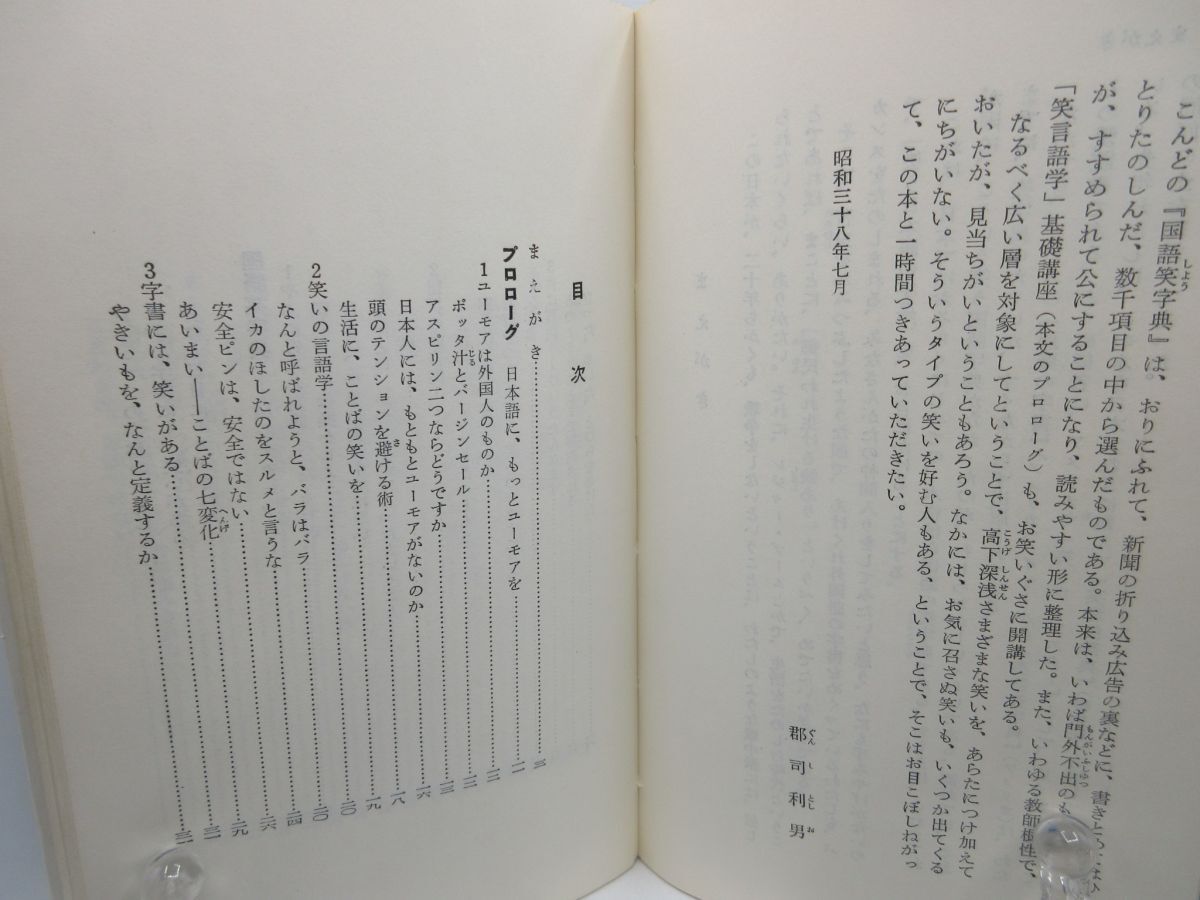 こんどの『国語笑字典』は、おりにふれて、新聞の折り込み広告の裏などに、書きと
とりたのしんだ、数千項目の中から選んだものである。本来は、いわば門外不出のも
が、すすめられて公にすることになり、読みやすい形に整理した。また、いわゆる教師根性で、
「笑言語学」基礎講座（本文のプロローグ）も、お笑いぐさに開講してある。
なるべく広い層を対象にしてということで、高下深浅さまざまな笑いを、あらたにつけ加えて
おいたが、見当ちがいということもあろう。なかには、お気に召さぬ笑いも、いくつか出てくる
にちがいない。そういうタイプの笑いを好む人もある、ということで、そこはお目こぼしねがっ
て、この本と一時間つきあっていただきたい。
昭和三十八年七月
郡司利男
目次
まえがき
プロローグ 日本語に、もっとユーモアを
1 ユーモアは外国人のものか
ボッタ汁とバージンセール
アスピリン二つならどうですか
日本人には、もともとユーモアがないのか
頭のテンションを避ける術
生活に、ことばの笑いを
2 笑いの言語学
なんと呼ばれようと、バラはバラ
イカのほしたのをスルメと言うな
安全ピンは、安全ではない
あいまい――ことばの七変化
3 字書には、笑いがある
やきいもを、なんと定義するか